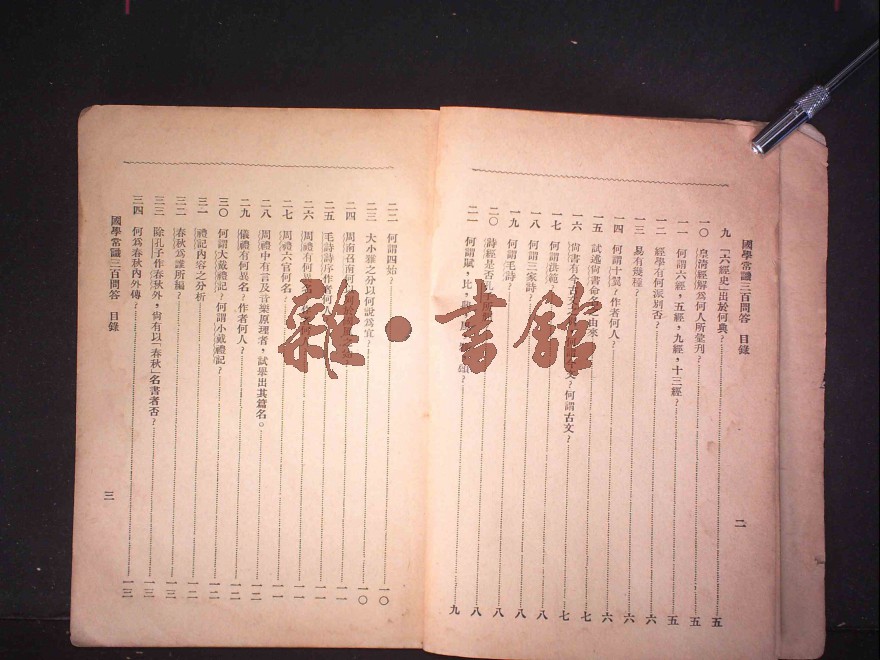 國學常識三百問答　目錄
九　「六經史」出於何典？……五
一〇　皇清經解爲何人所彙刋？……五
一一　何謂六經，五經，九經，十三經？……五
一二　經學有何派別否？……六
一三　易有幾種？……六
一四　何謂十翼？作者何人？……六
一五　試述尙書命名之由來……七
一六　尙書有今古文　？何謂古文？……七
一七　何謂洪範……八
一八　何謂三家詩？……八
一九　何謂毛詩？……八
二〇　詩經是否孔子……八
二一　何謂賦，比，……九
二
二二　何謂四始？……一〇
二三　大小雅之分以何說爲宜？……一〇
二四　周南召南何……一一
二五　毛詩詩序作者何……一一
二六　周禮有何異名……一一
二七　周禮六官何名？……一一
二八　周禮中有言及音樂原理者，試舉出其篇名。……一二
二九　儀禮有何異名？作者何人？……一二
三〇　何謂大戴禮記？何謂小戴禮記？……一二
三一　禮記內容之分析……一二
三二　春秋爲誰所編？……一三
三三　除孔子作春秋外，尙有以「春秋」名書者否？……一三
三四　何爲春秋內外傳？……一三
國學常識三百問答　目錄
三
雜·書館